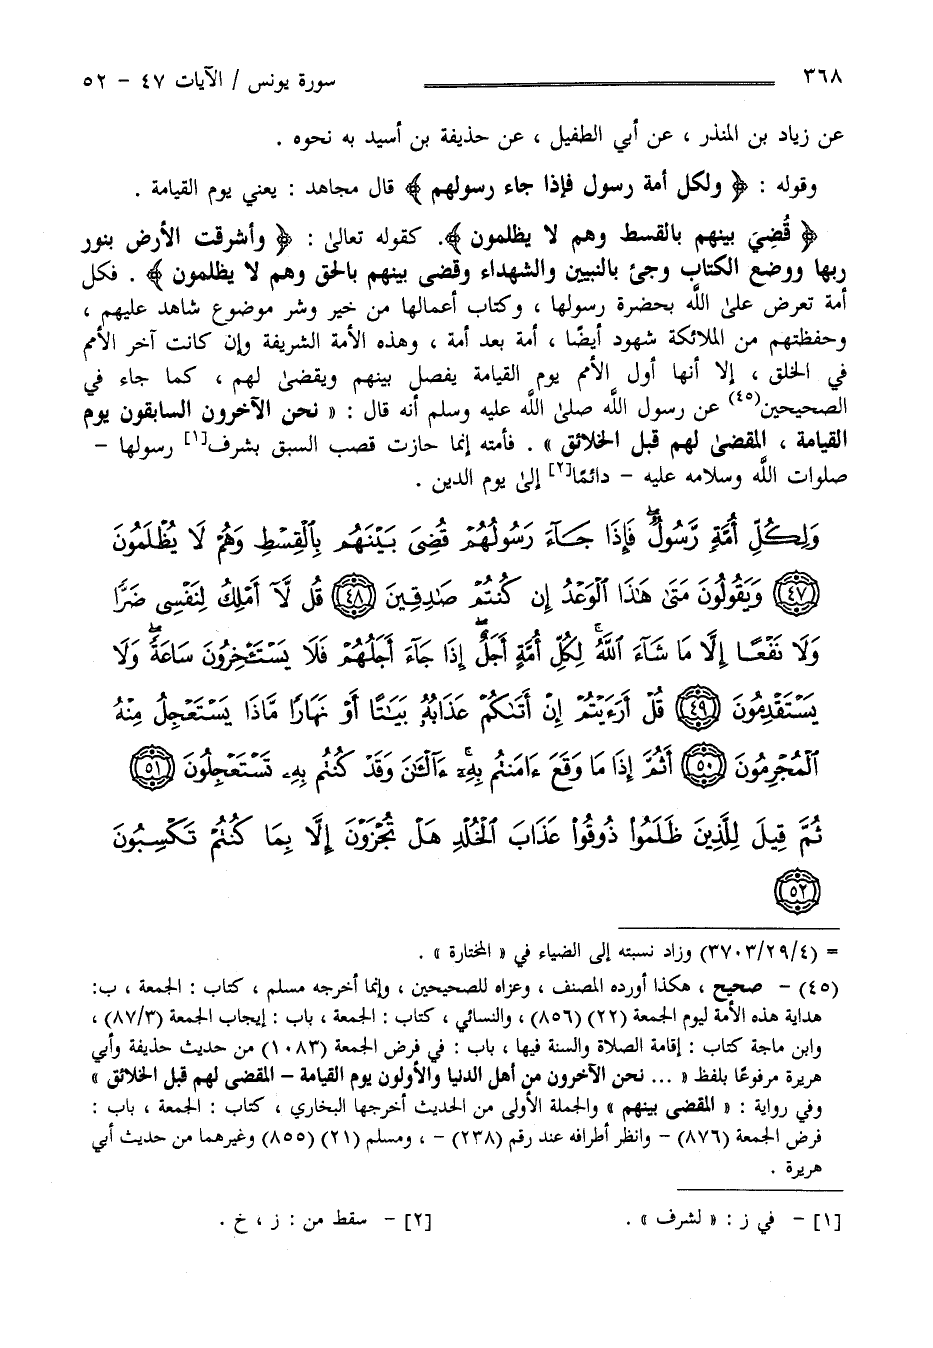 ٣٦٨ سورة يونس / الآيات ٤٧ - ٥٢
عن زياد بن المنذر ، عن أبي الطفيل ، عن حذيفة بن أسيد به نحوه .
وقوله : ﴿ ولكل أمة رسول فإذا جاء رسولهم ﴾ قال مجاهد : يعني يوم القيامة .
﴿ قُضِيَ بينهم بالقسط وهم لا يظلمون ﴾. كقوله تعالىٰ : ﴿ وأشرقت الأرض بنور
ربها ووضع الكتاب وجئ بالنبيين والشهداء وقضى بينهم بالحق وهم لا يظلمون ﴾ . فكل
أمة تعرض علىٰ اللَّه بحضرة رسولها ، وكتاب أعمالها من خير وشر موضوع شاهد عليهم ،
وحفظتهم من الملائكة شهود أيضًا ، أمة بعد أمة ، وهذه الأمة الشريفة وإن كانت آخر الأمم
في الخلق ، إلا أنها أول الأمم يوم القيامة يفصل بينهم ويقضىٰ لهم ، كما جاء في
الصحيحين(٤٥) عن رسول اللَّه صلىٰ اللَّه عليه وسلم أنه قال : « نحن الآخرون السابقون يوم
القيامة ، المقضىٰ لهم قبل الخلائق » . فأمته إنما حازت قصب السبق بشرف[١] رسولها –
صلوات اللَّه وسلامه عليه – دائمًا[٢] إلىٰ يوم الدين .
وَلِكُلِّ أُمَّةٍ رَّسُولٌۖ فَإِذَا جَآءَ رَسُولُهُمۡ قُضِيَ بَيۡنَهُم بِٱلۡقِسۡطِ وَهُمۡ لَا يُظۡلَمُونَ
﴿٤٧﴾ وَيَقُولُونَ مَتَىٰ هَٰذَا ٱلۡوَعۡدُ إِن كُنتُمۡ صَٰدِقِينَ ﴿٤٨﴾ قُل لَّآ أَمۡلِكُ لِنَفۡسِي ضَرّٗا
وَلَا نَفۡعًا إِلَّا مَا شَآءَ ٱللَّهُۗ لِكُلِّ أُمَّةٍ أَجَلٌۚ إِذَا جَآءَ أَجَلُهُمۡ فَلَا يَسۡتَـٔۡخِرُونَ سَاعَةٗۖ وَلَا
يَسۡتَقۡدِمُونَ ﴿٤٩﴾ قُلۡ أَرَءَيۡتُمۡ إِنۡ أَتَىٰكُمۡ عَذَابُهُۥ بَيَٰتًا أَوۡ نَهَارٗا مَّاذَا يَسۡتَعۡجِلُ مِنۡهُ
ٱلۡمُجۡرِمُونَ ﴿٥٠﴾ أَثُمَّ إِذَا مَا وَقَعَ ءَامَنتُم بِهِۦٓۚ ءَآلۡـَٰٔنَ وَقَدۡ كُنتُم بِهِۦ تَسۡتَعۡجِلُونَ ﴿٥١﴾
ثُمَّ قِيلَ لِلَّذِينَ ظَلَمُواْ ذُوقُواْ عَذَابَ ٱلۡخُلۡدِ هَلۡ تُجۡزَوۡنَ إِلَّا بِمَا كُنتُمۡ تَكۡسِبُونَ
﴿٥٢﴾
= (٣٧٠٣/٢٩/٤) وزاد نسبته إلى الضياء في « المختارة » .
(٤٥) – صحيح ، هكذا أورده المصنف ، وعزاه للصحيحين ، وإنما أخرجه مسلم ، كتاب : الجمعة ، ب:
هداية هذه الأمة ليوم الجمعة (٢٢) (٨٥٦) ، والنسائي ، كتاب : الجمعة ، باب : إيجاب الجمعة (٨٧/٣) ،
وابن ماجة كتاب : إقامة الصلاة والسنة فيها ، باب : في فرض الجمعة (١٠٨٣) من حديث حذيفة وأبي
هريرة مرفوعًا بلفظ « ... نحن الآخرون من أهل الدنيا والأولون يوم القيامة – المقضى لهم قبل الخلائق »
وفي رواية : « المقضى بينهم » والجملة الأولى من الحديث أخرجها البخاري ، كتاب : الجمعة ، باب :
فرض الجمعة (٨٧٦) – وانظر أطرافه عند رقم (٢٣٨) – ، ومسلم (٢١) (٨٥٥) وغيرهما من حديث أبي
هريرة .
[١] – في ز : « لشرف » . [٢] – سقط من : ز ، خ .